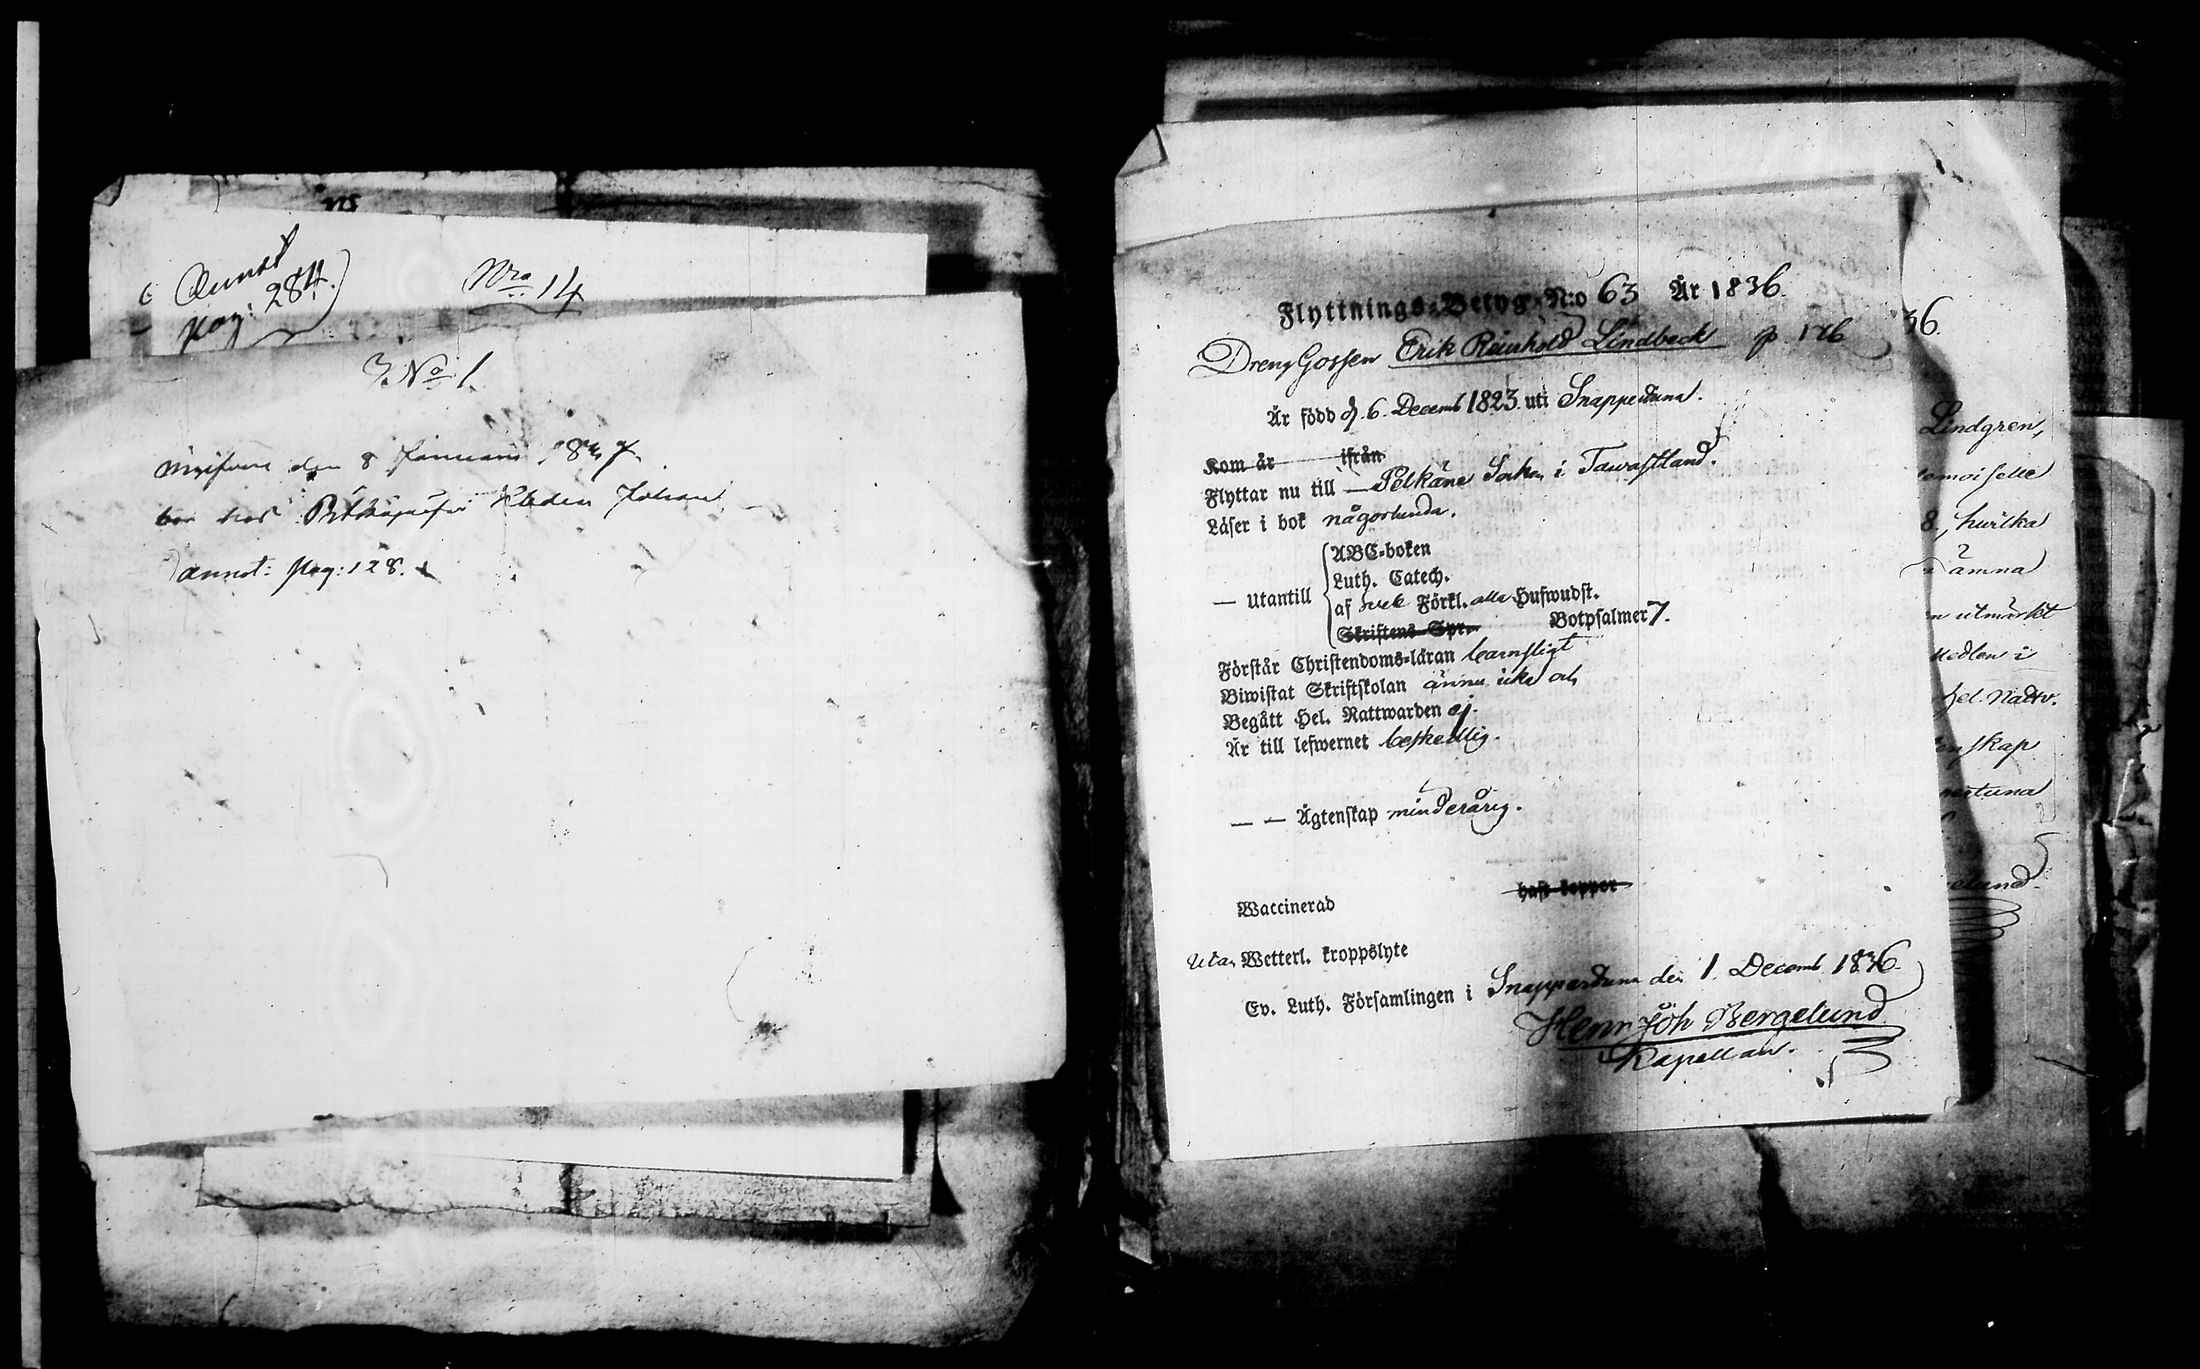 Annot
pag: 284.
Nro 14
No 1
den 8 Januarii 1837.
hos Johan
annot: pag: 128.
Flyttnings-Betyg N:o 63 År 1836.
Dreng Gossen Erik Reinhold Lindbeck p. 176
Är född d. 6. Decemb 1823. uti Snappertuna.
Kom år ifrån
Flyttar nu till — Pelkäne Sokn i Tawastland.
Läser i bok någorlunda.
— utantill
ABC-boken
Luth. Catech.
af Förkl. alla Hufwudst.
Skriftens Spr. Botpsalmer 7.
Förstår Christendoms-läran barnsligt
Biwistat Skriftskolan ännu icke och
Begått Hel. Nattwarden ej.
Är till lefwernet beskedlig.
— — Ägtenskap minderårig.
Waccinerad haft koppor
utan Wetterl. kroppslyte
Ev. Luth. Församlingen i Snappertuna den 1. Decemb. 1836.
Henr Joh Bergelund
Kapellan.
36.
Lindgren,
emoiselle
8, hvilka
ämna
utmärkt
hel. Nattv.
skap
ertuna
elund.